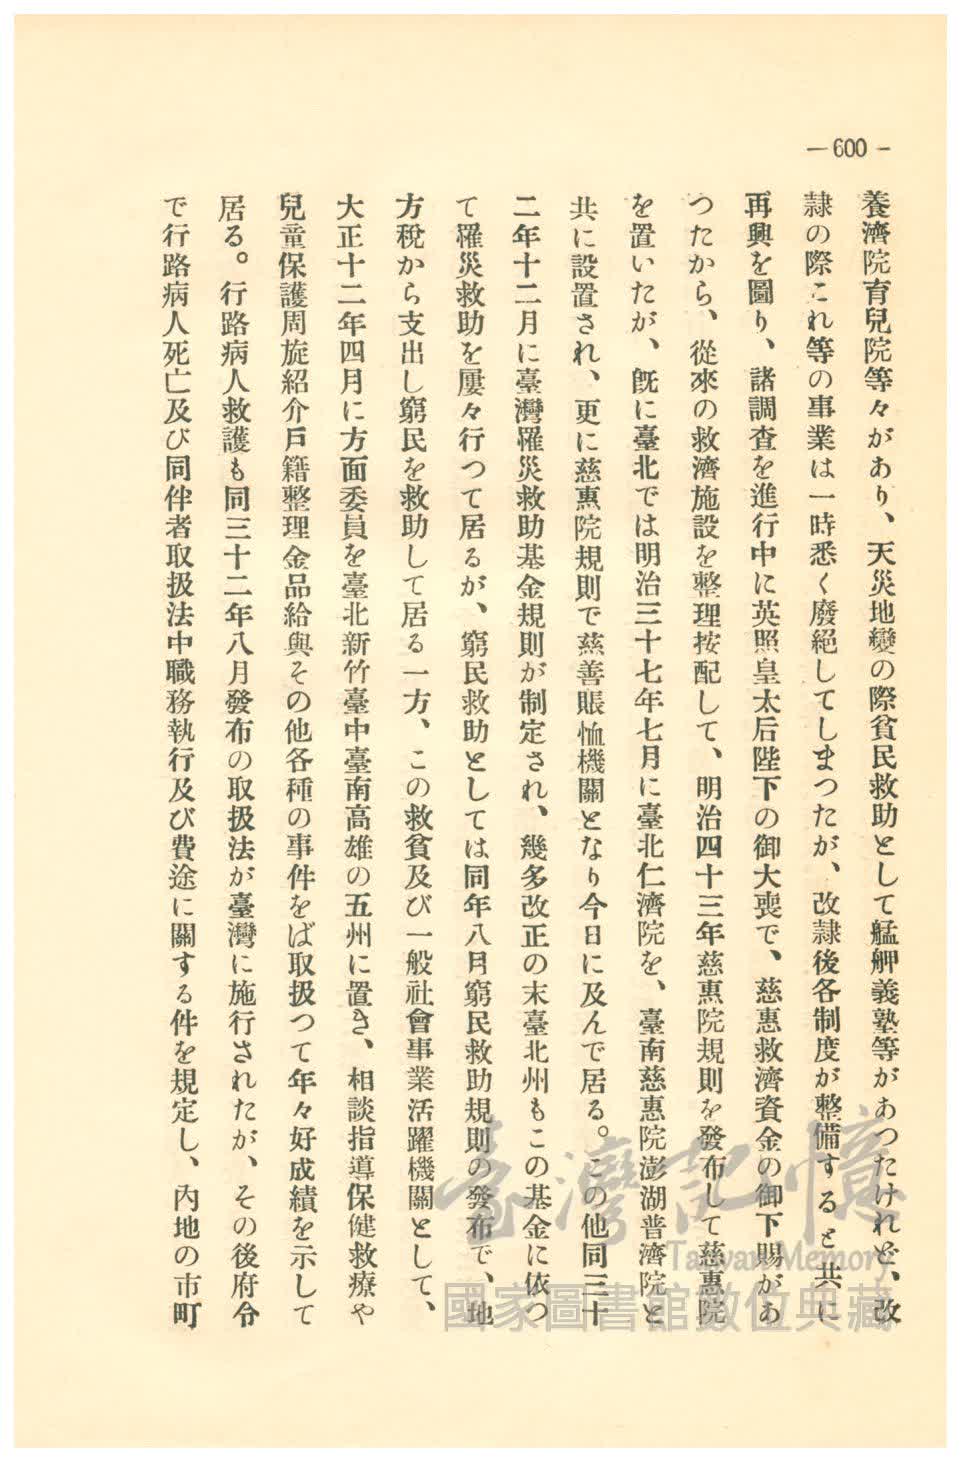 — 600 —
養濟院育兒院等々があり、天災地變の際貧民救助として艋舺義塾等があつたけれど、改
隷の際これ等の事業は一時悉く廢絕してしまつたが、改隷後各制度が整備すると共に
再興を圖り、諸調査を進行中に英照皇太后陛下の御大喪で、慈惠救濟資金の御下賜があ
つたから、從來の救濟施設を整理按配して、明治四十三年慈惠院規則を發布して慈惠院
を置いたが、既に臺北では明治三十七年七月に臺北仁濟院を、臺南慈惠院澎湖普濟院と
共に設置され、更に慈惠院規則で慈善賬恤機關となり今日に及んで居る。この他同三十
二年十二月に臺灣罹災救助基金規則が制定され、幾多改正の末臺北州もこの基金に依つ
て罹災救助を屢々行つて居るが、窮民救助としては同年八月窮民救助規則の發布で、地
方稅から支出し窮民を救助して居る一方、この救貧及び一般社會事業活躍機關として、
大正十二年四月に方面委員を臺北新竹臺中臺南高雄の五州に置き、相談指導保健救療や
兒童保護周旋紹介戶籍整理金品給與その他各種の事件をば取扱つて年々好成績を示して
居る。行路病人救護も同三十二年八月發布の取扱法が臺灣に施行されたが、その後府令
で行路病人死亡及び同伴者取扱法中職務執行及び費途に關する件を規定し、內地の市町
臺灣記憶
Taiwan Memory
國家圖書館數位典藏